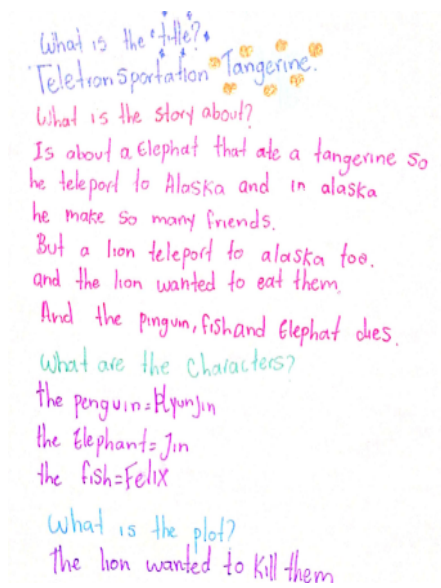 What is the title?
Teletransportation Tangerine.
What is the story about?
Is about a Elephat that ate a tangerine so
he teleport to Alaska and in alaska
he make so many friends.
But a lion teleport to alaska too.
and the lion wanted to eat them.
And the pinguin, fish and Elephat dies.
What are the characters?
the penguin=Hyunjin
the Elephant=Jin
the fish=Felix
What is the plot?
The lion wanted to kill them